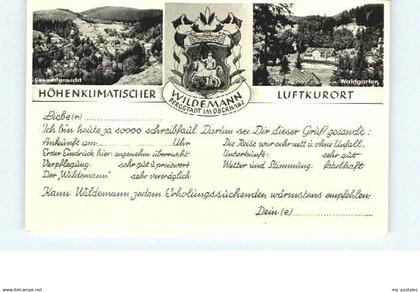 Gesamtansicht
Waldgarten
HÖHENKLIMATISCHER
WILDEMANN
BERGSTADT IM OBERHARZ
LUFTKURORT
Liebe(r)
Ich bin heute ja soooo schreibfaul. Darum sei Dir dieser Gruß gesandt:
Ankunft am Uhr
Die Reise war sehr nett u. ohne Unfall.
Erster Eindruck hier: angenehm überrascht.
Unterkunft: sehr gut
Verpflegung: sehr gut & preiswert
Wetter und Stimmung: fabelhaft
Der "Wildemann" sehr verträglich
Kann Wildemann jedem Erholungssuchenden wärmstens empfehlen.
Dein(e)
www.mypostales.com